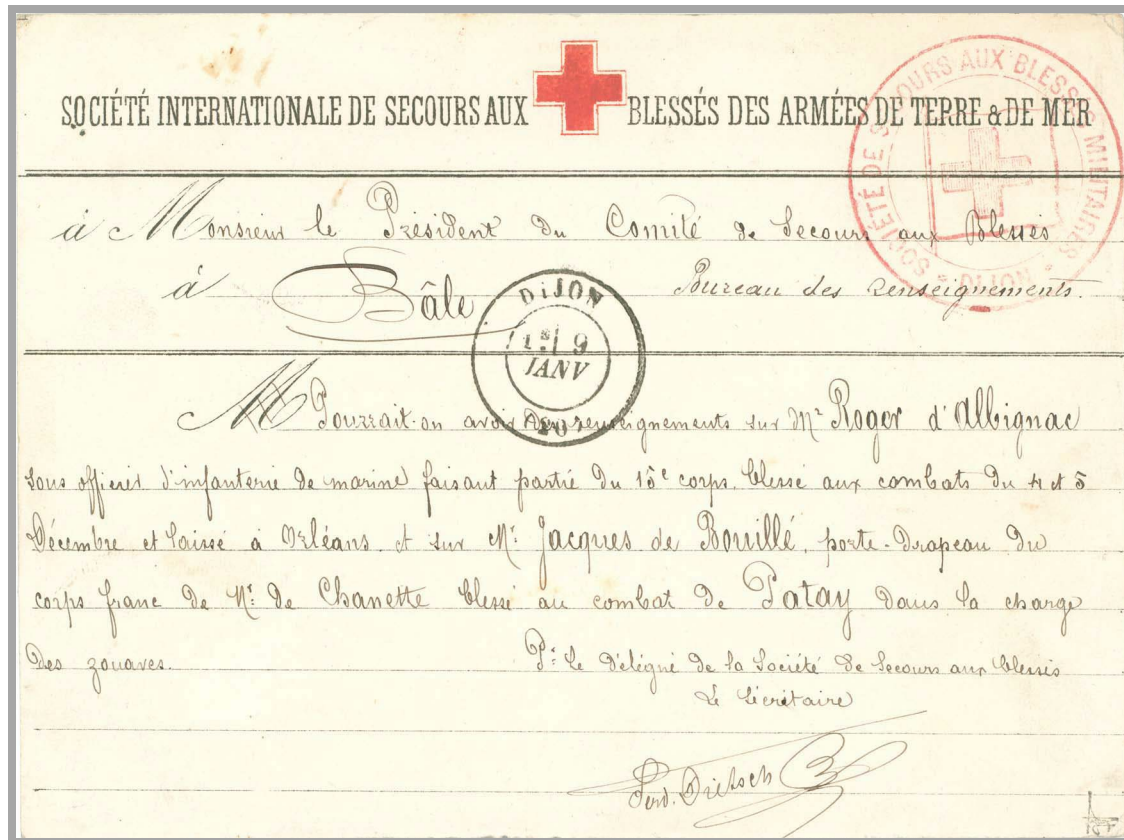 SOCIÉTÉ INTERNATIONALE DE SECOURS AUX BLESSÉS DES ARMÉES DE TERRE & DE MER
SOCIÉTÉ DE SECOURS AUX BLESSÉS MILITAIRES
DIJON
à Monsieur le Président du Comité de Secours aux Blessés
à Bâle Bureau des Renseignements.
DIJON
9
JANV
M Pourrait-on avoir des renseignements sur Mr Roger d'Albignac
sous officier d'infanterie de marine faisant partie du 15e corps, blessé aux combats du 4 et 5
Décembre et laissé à Orléans, et sur Mr Jacques de Bouillé, porte-drapeau du
corps franc de Mr de blessé au combat de Patay dans la charge
des zouaves.
Pr Le Délégué de la Société de Secours aux blessés
Le Secrétaire
Ferd.